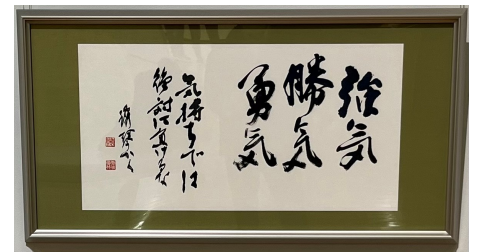 強気
勝気
勇気
気持ちでは
絶対に負けるな